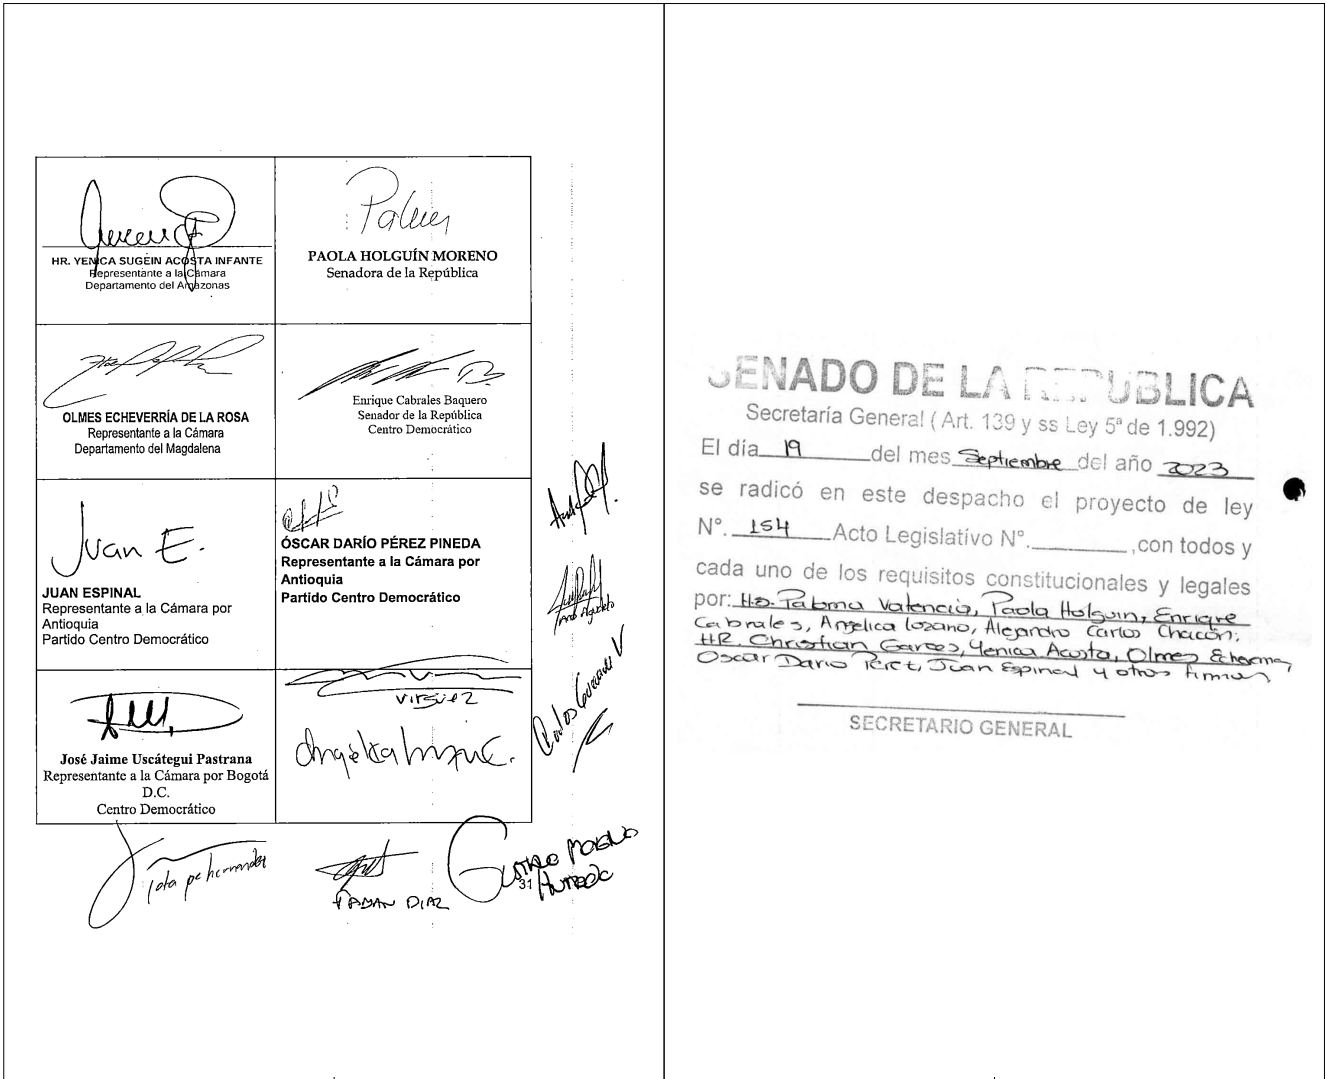 HR. YENICA SUGEIN ACOSTA INFANTE
Representante a la Cámara
Departamento del Amazonas
PAOLA HOLGUÍN MORENO
Senadora de la República
OLMES ECHEVERRÍA DE LA ROSA
Representante a la Cámara
Departamento del Magdalena
Enrique Cabrales Baquero
Senador de la República
Centro Democrático
Juan E.
JUAN ESPINAL
Representante a la Cámara por
Antioquia
Partido Centro Democrático
ÓSCAR DARÍO PÉREZ PINEDA
Representante a la Cámara por
Antioquia
Partido Centro Democrático
José Jaime Uscátegui Pastrana
Representante a la Cámara por Bogotá
D.C.
Centro Democrático
VIRGUEZ
Angélica Lozano C.
Jota pe hernandez
FABIAN DIAZ
GUSTAVO MORENO
HURTADO
31
SENADO DE LA REPUBLICA
Secretaría General ( Art. 139 y ss Ley 5ª de 1.992)
El día 19 del mes Septiembre del año 2023
se radicó en este despacho el proyecto de ley
N°. 154 Acto Legislativo N°. ,con todos y
cada uno de los requisitos constitucionales y legales
por: H.S. Paloma Valencia, Paola Holguin, Enrique
Cabrales, Angelica Lozano, Alejandro Carlos Chacon;
HR. Christian Garces, Yenica Acosta, Olmes Echeverria,
Oscar Dario Perez, Juan Espinal y otras firmas
SECRETARIO GENERAL